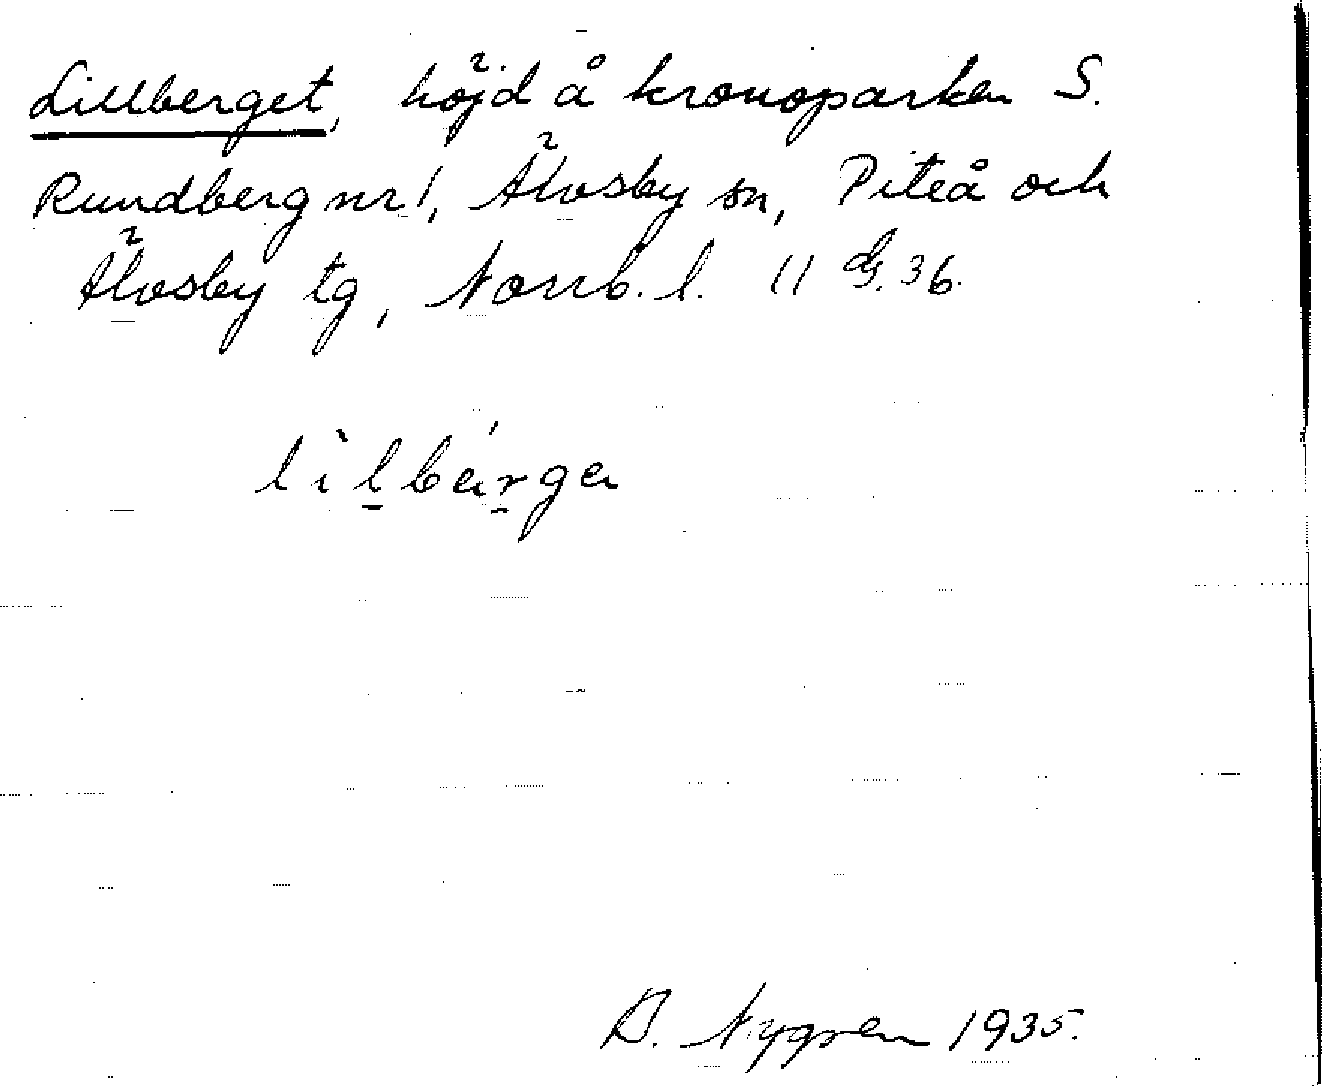 Lillberget, höjd å kronoparken S.
Rundberg nr 1, Älvsby sn, Piteå och
Älvsby tg, Norrb. l. 11 dg. 36.
lìl̠bár̠ga
D. Nygren 1935.